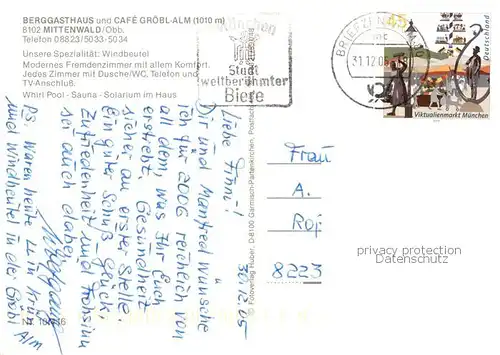 BERGGASTHAUS und CAFÉ GRÖBL-ALM (1010 m)
8102 MITTENWALD/Obb.
Telefon 08823/5033-5034
Unsere Spezialität: Windbeutel
Modernes Fremdenzimmer mit allem Komfort.
Jedes Zimmer mit Dusche/WC, Telefon und
TV-Anschluß.
Whirl Pool - Sauna - Solarium im Haus
München
Stadt
weltberühmter
Biere
BRIEFZENTRUM
31.12.05
Deutschland
Viktualienmarkt München
30.12.05
Liebe Finni -!
Dir und Manfred wünsche
ich für 2006 reichlich von
all dem, was Ihr Euch
erstrebt, Gesundheit
sicher an erster Stelle.
Ein guter Schuß Glück,
Zufriedenheit und Frohsinn
sei auch dabei.
PS. Waren heute LL in Krün
und Windbeutel in der Gröbl Alm
© Fotoverlag Huber · D-8100 Garmisch-Partenkirchen
Frau
A.
8223
privacy protection
Datenschutz